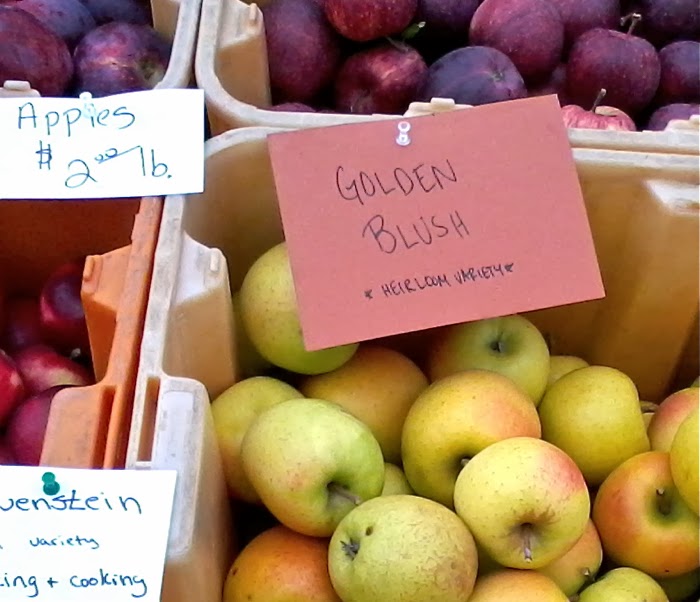 Apples
$2.00/lb.
GOLDEN
BLUSH
* HEIRLOOM VARIETY *
venstein
variety
ing + cooking